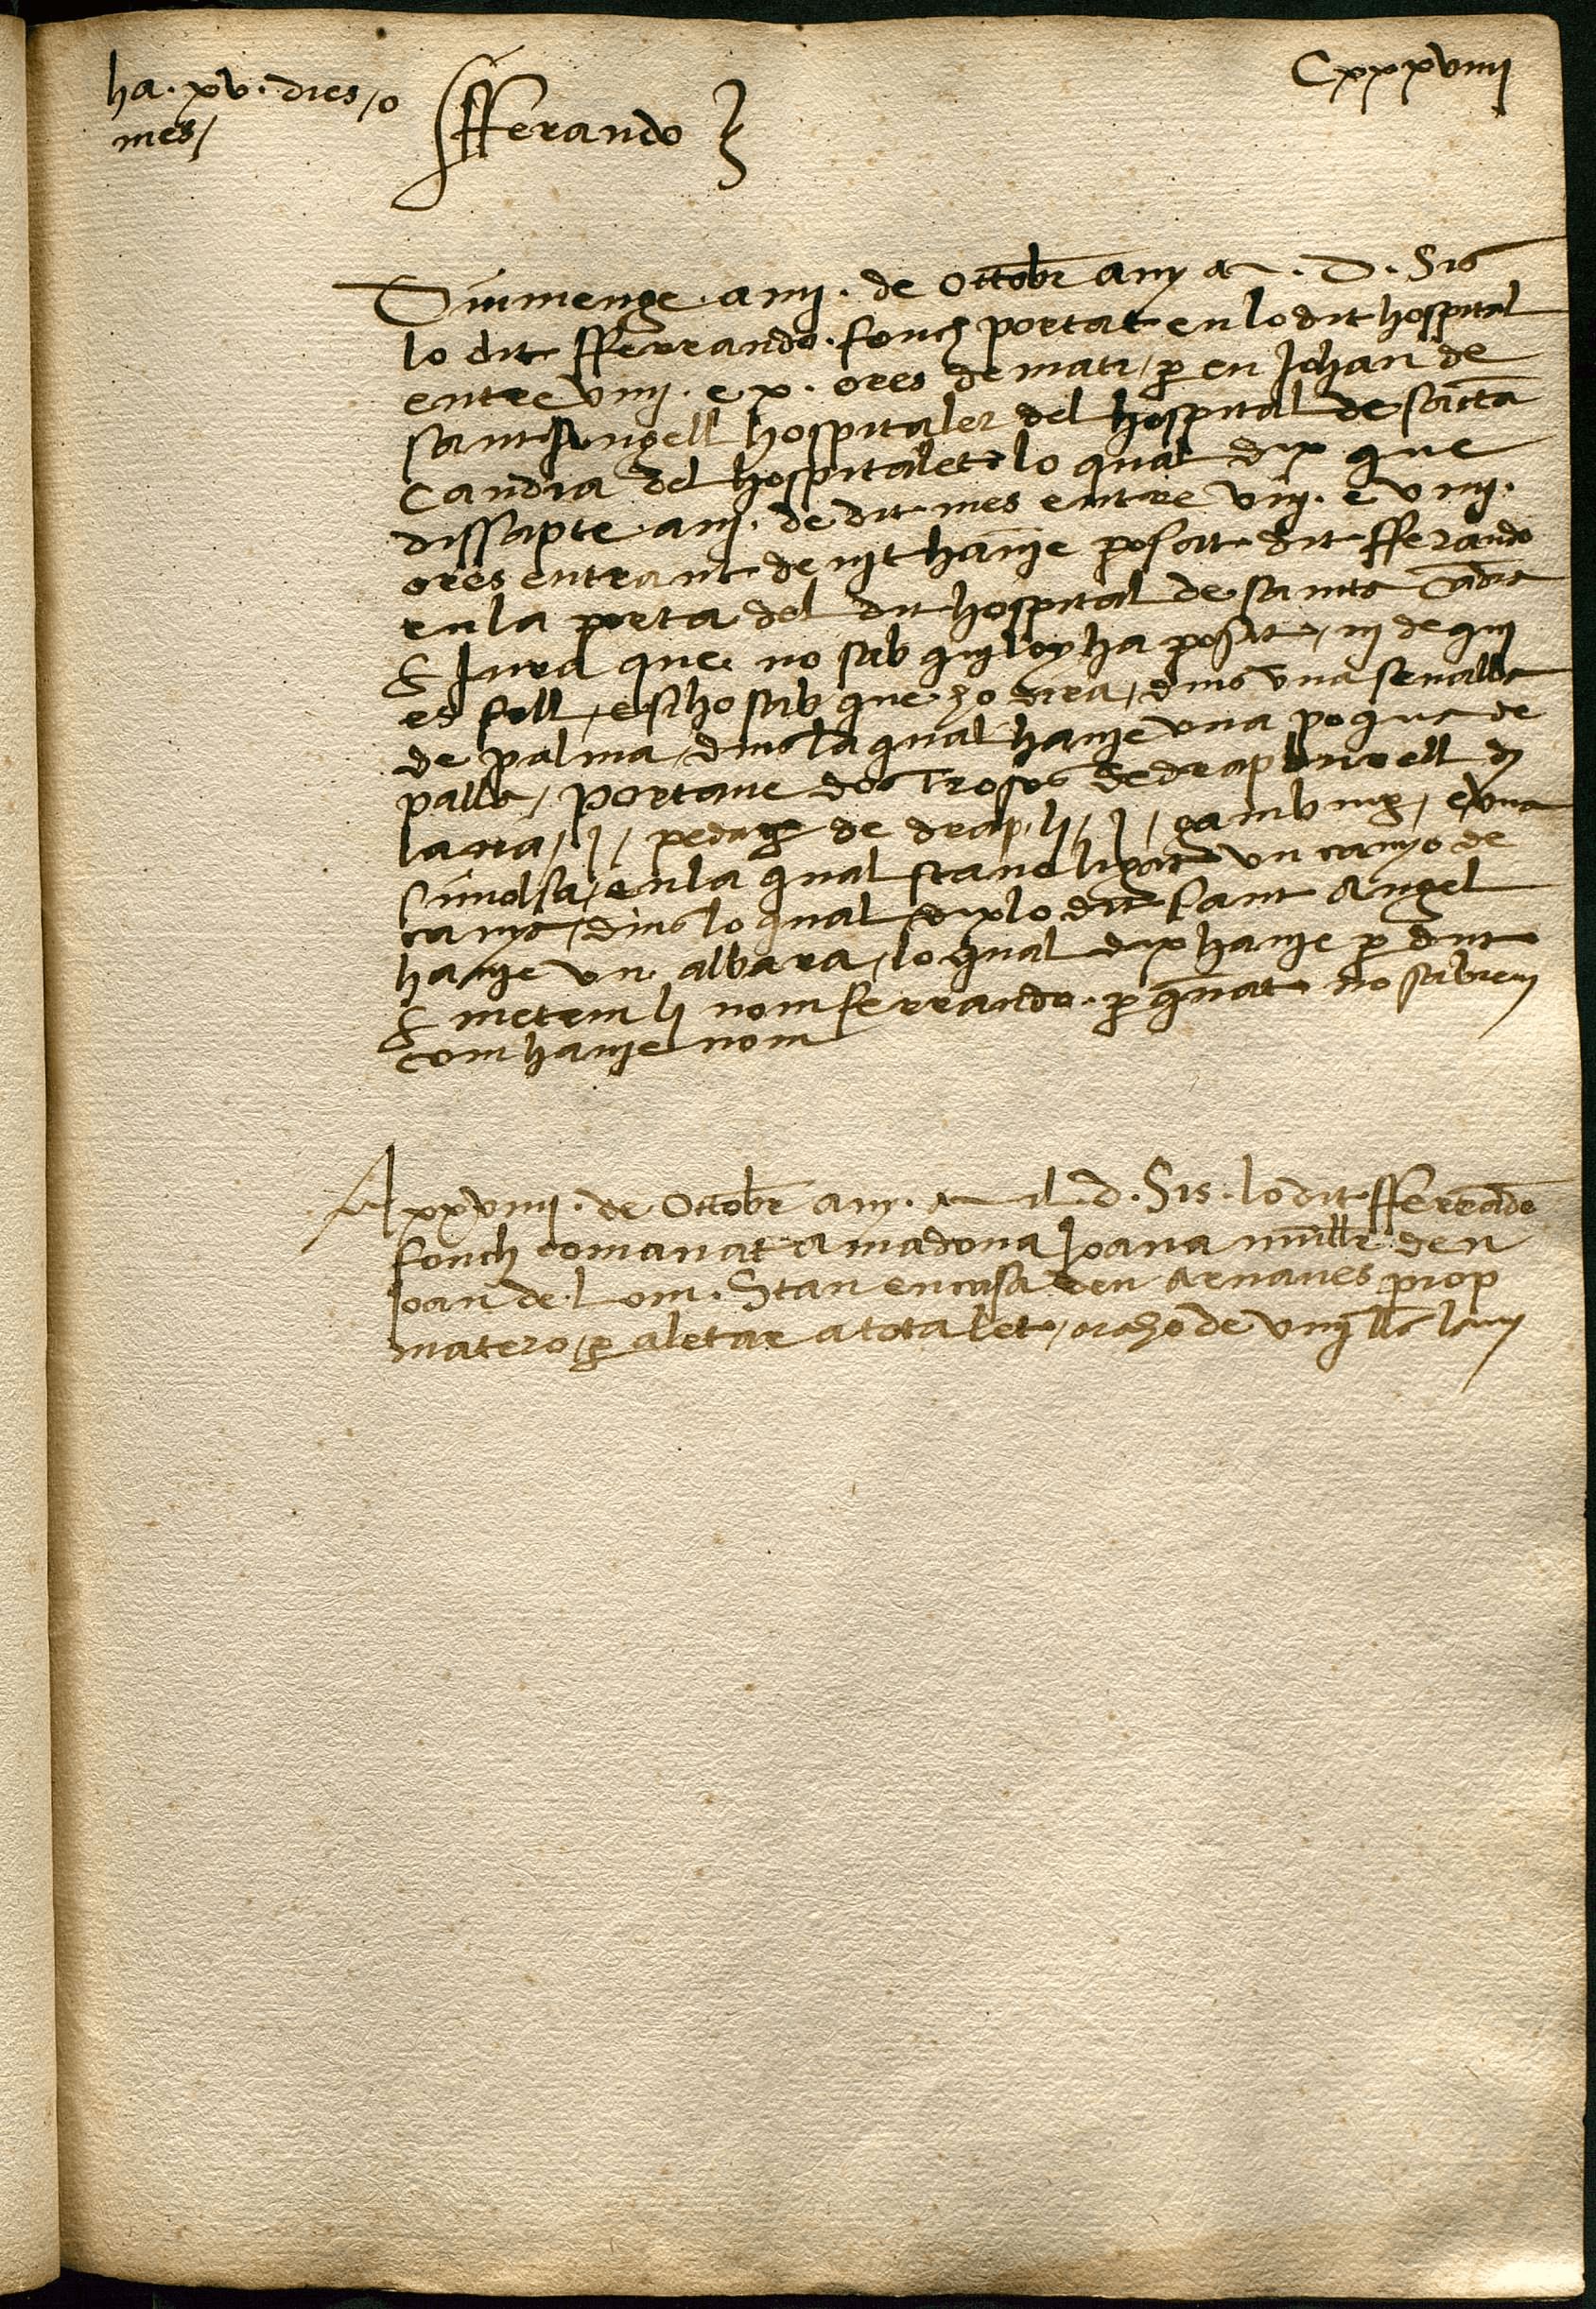 Cxxxviiij
ha . xv . dies / o
mes /
fferando
Diumenge . a iiij . de Ottobr any . D . Sis
lo dit fferrando . fonch portat en lo dit hospital
entre viiij . e x . ores de mati / per en Johan de
sant Angell hospitaler del hospital de sancta
Candia del hospitalet lo qual dix que
dissapte . a iij . de dit mes entre viij . e viiij .
ores entrant de nit havie posat dit fferando
en la porta del dit hospital de santa Cādia
E Jura que no sab qui loy ha posat / ni de qui
es fill / e si ho sab que ho dira / dins una senalla
de palma / dins la qual havie una poqua de
palla / portave dos trosos de drap burell d
lana / j / pedaç de drap li / j / gambuig / e una
simolsa / en la qual stave ligat un canyo de
canya / dins lo qual dix lo dit sant Angel
havie un albara / lo qual dix havie perdut
E metem li nom ferrando . per quant no sabiem
com havie nom
A xxviiij . de Ottobr any . d . Sis . lo dit fferrādo
fonch comanat a madona Joana mullr den
Joan de Lom . Stan en casa den Arnaues prop
matero / per aletar a tota let / a raho de viij ll̃s lany